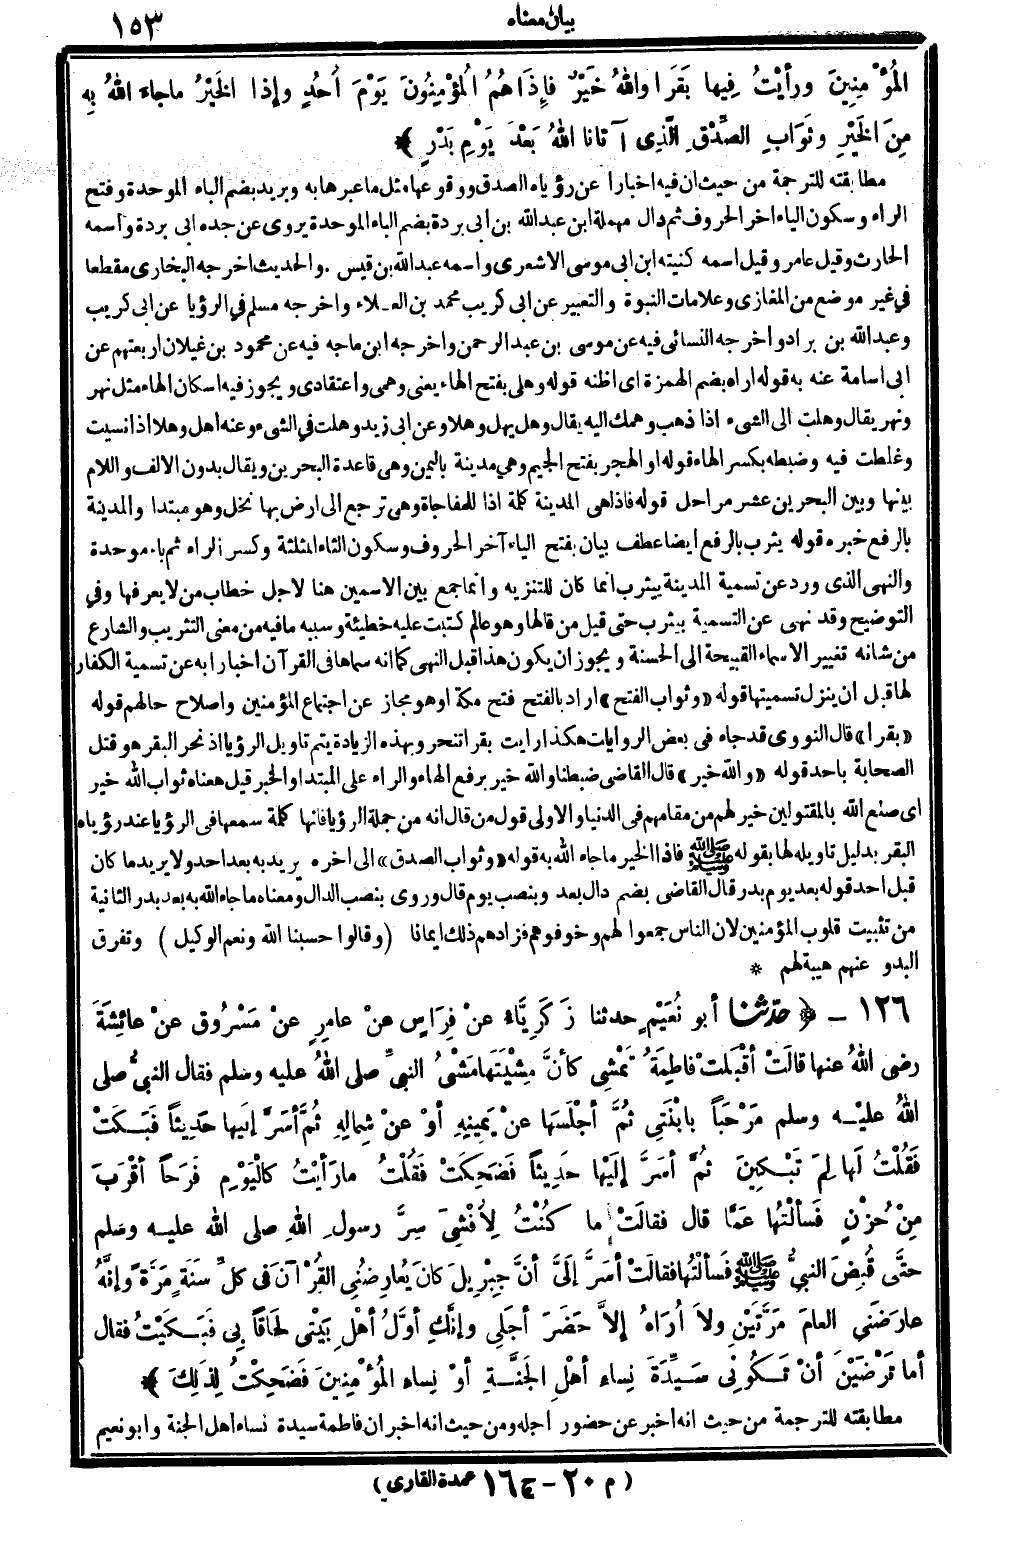 بيان معناه ١٥٣
المُؤْمِنِينَ ورأيْتُ فِيها بَقَرًا واللهُ خَيْرٌ فإذَا هُمُ المُؤْمِنُونَ يَوْمَ أُحُدٍ وإذا الخَيْرُ ماجاءَ اللهُ بِهِ
مِنَ الخَيْرِ وثَوَابِ الصِّدْقِ الَّذِى آتانا اللهُ بَعْدَ يَوْمِ بَدْرٍ ﴾
مطابقته للترجمة من حيث ان فيه اخبارا عن رؤياه الصدق ووقوعها مثل ما عبر هابه وبريد بضم الباء الموحدة وفتح
الراء وسكون الياء اخر الحروف ثم دال مهملة ابن عبدالله بن ابى بردة بضم الباء الموحدة يروى عن جده ابى بردة واسمه
الحارث وقيل عامر وقيل اسمه كنيته ابن ابى موسى الاشعرى واسمه عبدالله بن قيس . والحديث اخرجه البخارى مقطعا
في غير موضع من المغازى وعلامات النبوة والتعبير عن ابى كريب محمد بن العلاء واخرجه مسلم في الرؤيا عن ابى كريب
وعبدالله بن براد واخرجه النسائى فيه عن موسى بن عبد الرحمن واخرجه ابن ماجه فيه عن محمود بن غيلان اربعتهم عن
ابى اسامة عنه به قوله اراه بضم الهمزة اى اظنه قوله وهلى بفتح الهاء يعنى وهمى واعتقادى ويجوز فيه اسكان الهاء مثل نهر
ونهر يقال وهلت الى الشىء اذا ذهب وهمك اليه يقال وهل يهل وهلا وعن ابى زيد وهلت في الشىء وعنه اهل وهلا اذا نسيت
وغلطت فيه وضبطه بكسر الهاء قوله او الهجر بفتح الجيم وهي مدينة باليمن وهى قاعدة البحرين ويقال بدون الالف واللام
بينها وبين البحرين عشر مراحل قوله فاذا هى المدينة كلمة اذا للمفاجأة وهى ترجع الى ارض بها نخل وهو مبتدا والمدينة
بالرفع خبره قوله يثرب بالرفع ايضا عطف بيان بفتح الياء آخر الحروف وسكون الثاء المثلثة وكسر الراء ثم باء موحدة
والنهى الذى ورد عن تسمية المدينة بيثرب انما كان للتنزيه وانما جمع بين الاسمين هنا لاجل خطاب من لا يعرفها وفي
التوضيح وقد نهى عن التسمية بيثرب حتى قيل من قالها وهو عالم كتبت عليه خطيئة وسببه ما فيه من معنى التثريب والشارع
من شانه تغيير الاسماء القبيحة الى الحسنة ويجوز ان يكون هذا قبل النهى كما انه سماها فى القرآن اخبارا به عن تسمية الكفار
لها قبل ان ينزل تسميتها قوله «وثواب الفتح» اراد بالفتح فتح مكة او هو مجاز عن اجتماع المؤمنين واصلاح حالهم قوله
«بقرا» قال النووى قد جاء فى بعض الروايات هكذا رايت بقرا تنحر وبهذه الزيادة يتم تاويل الرؤيا اذ نحر البقر هو قتل
الصحابة باحد قوله «والله خير» قال القاضى ضبطنا والله خير برفع الهاء والراء على المبتدا والخبر قيل معناه ثواب الله خير
اى صنع الله بالمقتولين خير لهم من مقامهم فى الدنيا والاولى قول من قال انه من جملة الرؤيا فانها كلمة سمعها فى الرؤيا عند رؤياه
البقر بدليل تاويله لها بقوله ﷺ فاذا الخير ماجاء الله به قوله «وثواب الصدق» الى اخره يريد به بعد احد ولا يريد ما كان
قبل احد قوله بعد يوم بدر قال القاضى بضم دال بعد وبنصب يوم قال وروى بنصب الدال ومعناه ماجاء الله به بعد بدر الثانية
من تثبيت قلوب المؤمنين لان الناس جمعوا لهم وخوفوهم فزادهم ذلك ايمانا (وقالوا حسبنا الله ونعم الوكيل) وتفرق
البدو عنهم هيبة لهم *
١٢٦ ـ ﴿ حدّثنا أبو نُعَيْمٍ حدثنا زَكَرِيَّاءُ عنْ فِرَاسٍ عنْ عامِرٍ عنْ مَسْرُوقٍ عنْ عائِشَةَ
رضى اللهُ عنها قالَتْ أقْبَلَتْ فاطِمَةُ تَمْشِى كأنَّ مِشْيَتَها مَشْىُ النبيِّ صلى اللهُ عليه وسلم فقال النبيُّ صلى
اللهُ عليْه وسلم مَرْحَباً بابْنَتِى ثُمَّ أجْلَسَها عنْ يَمِينِهِ أوْ عنْ شِمالِهِ ثُمَّ أسَرَّ إليها حَدِيثاً فَبَكَتْ
فَقُلْتُ لَها لِمَ تَبْكِينَ ثُمَّ أسَرَّ إلَيْها حَدِيثاً فَضَحِكَتْ فَقُلْتُ ما رَأيْتُ كالْيَوْمِ فَرَحاً أقْرَبَ
مِنْ حُزْنٍ فَسألْتُها عَمَّا قال فقالَتْ ما كُنْتُ لِأُفْشِىَ سِرَّ رسولِ اللهِ صلى الله عليه وسلم
حتَّى قُبِضَ النبيُّ ﷺ فَسألْتُها فقالَتْ أسَرَّ إلَىَّ أنَّ جِبْرِيلَ كانَ يُعارِضُنِى القُرْآنَ فى كلِّ سَنَةٍ مَرَّةً وإنَّهُ
عارَضَنِي العامَ مَرَّتَيْنِ ولاَ أُرَاهُ إلاَّ حَضَرَ أجَلِى وإنَّكِ أوَّلُ أهْلِ بَيْتِى لَحاقاً بِى فَبَكَيْتُ فقال
أما تَرْضَيْنَ أنْ تَكُونِى سَيِّدَةَ نِساءِ أهْلِ الجَنَّةِ أوْ نِساءِ المُؤْمِنِينَ فَضَحِكْتُ لِذٰلِكَ ﴾
مطابقته للترجمة من حيث انه اخبر عن حضور اجله ومن حيث انه اخبر ان فاطمة سيدة نساء اهل الجنة وابو نعيم
(م ٢٠ - ج ١٦ عمدة القارى)